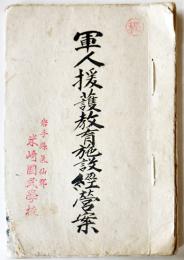 軍人援護教育施設経営案
岩手縣気仙郡
米崎國民学校